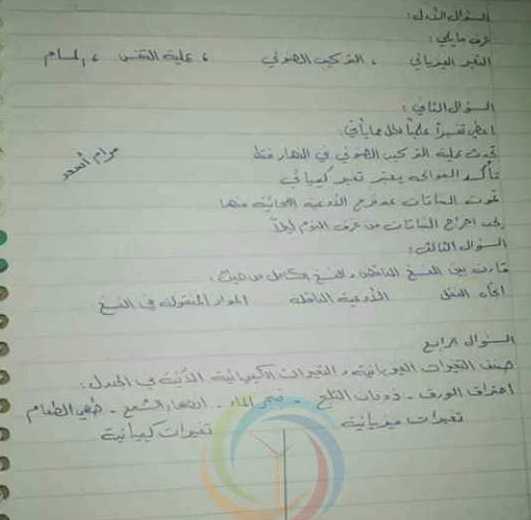 السؤال الأول:
عرف مايلي:
التغير الفيزيائي ، التركيب الضوئي ، عملية التنفس ، المسام
السؤال الثاني:
اعطي تفسيراً علمياً لكل مما يأتي:
تحدث عملية التركيب الضوئي في النهار فقط
مرام أحمد
تأكسد الفواكه يعتبر تغير كيميائي
تموت النباتات عند الأوعية منها
يجب اخراج النباتات من غرف النوم ليلاً
السؤال الثالث:
قارن بين النسغ الناقص والنسغ الكامل من حيث:
اتجاه النقل الأوعية الناقلة المواد المنقولة في النسغ
السؤال الرابع
صنف التغيرات الفيزيائية والتغيرات الكيميائية الآتية في الجدول:
احتراق الورق - ذوبان الثلج - تبخر الماء - انصهار الشمع - طهي الطعام
تغيرات فيزيائية تغيرات كيميائية